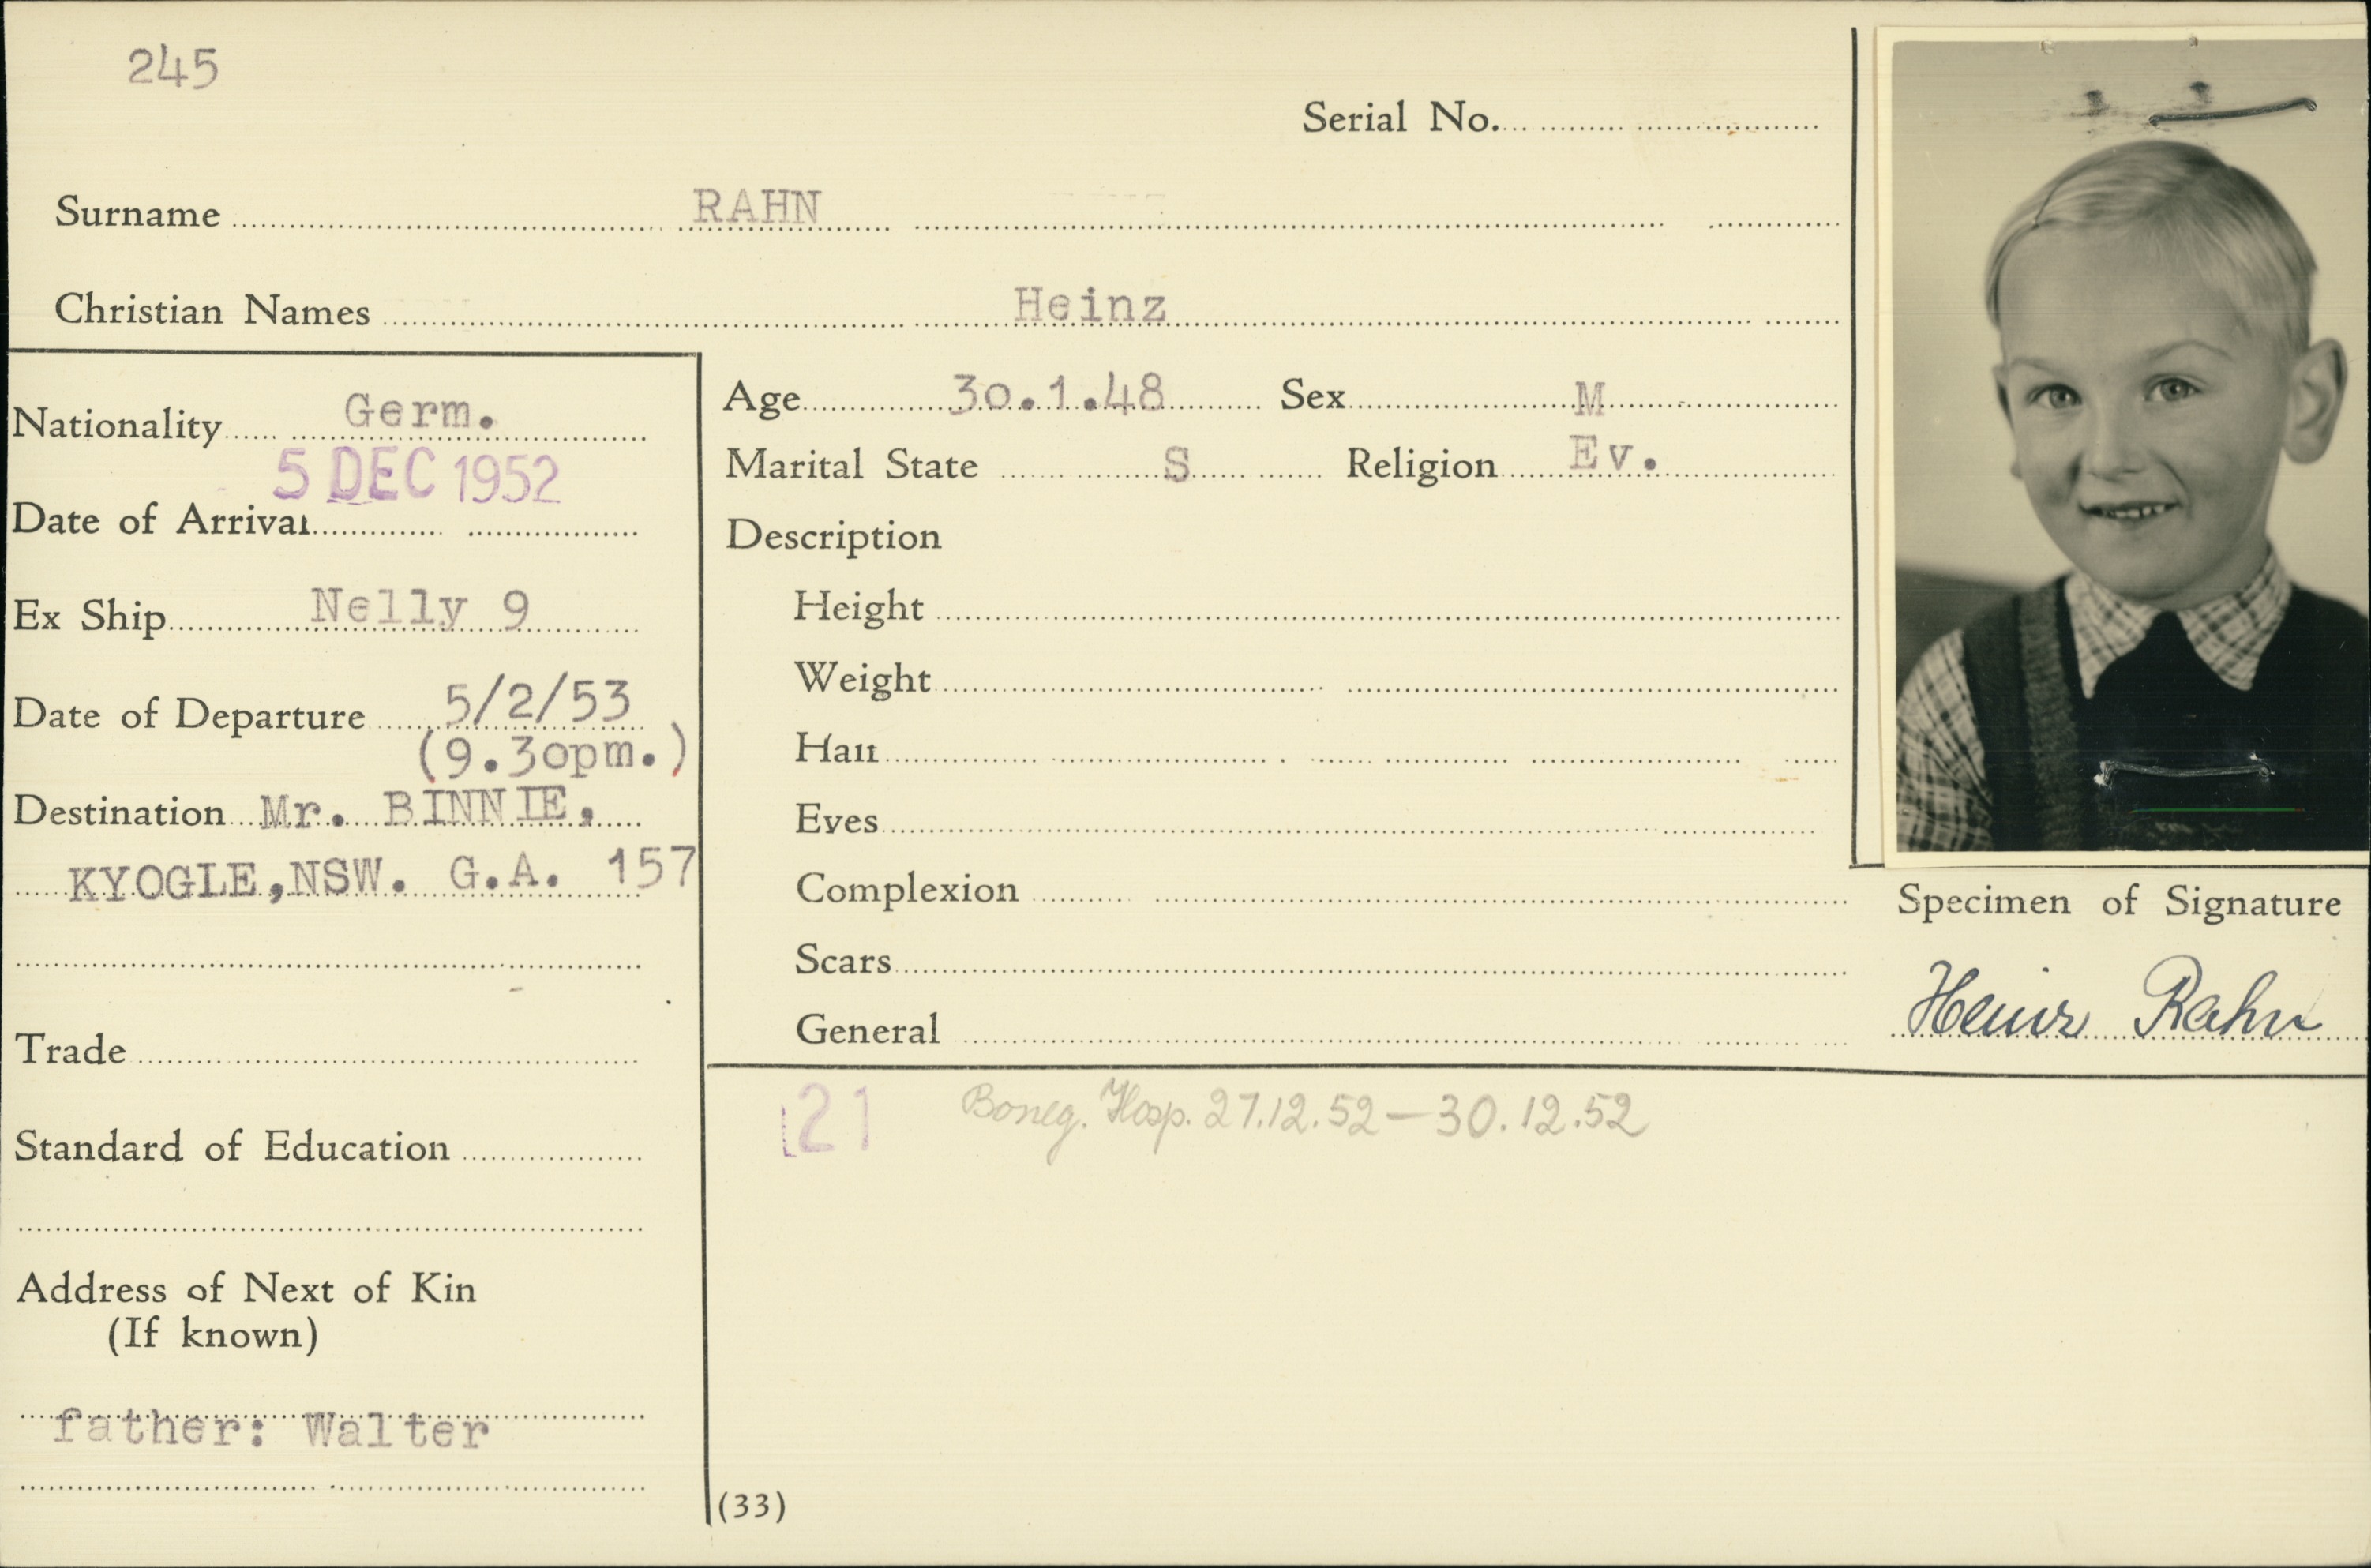 245
Serial No.
Surname RAHN
Christian Names Heinz
Nationality Germ.
5 DEC 1952
Date of Arrival
Ex Ship Nelly 9
Date of Departure 5/2/53
(9.30pm.)
Destination Mr. BINNIE,
KYOGLE,NSW. G.A. 157
Trade
Standard of Education
Address of Next of Kin
(If known)
father: Walter
Age 30.1.48 Sex M
Marital State S Religion Ev.
Description
Height
Weight
Hair
Eyes
Complexion
Scars
General
Specimen of Signature
Heinz Rahn
21 Boneg. Hosp. 27.12.52 — 30.12.52
(33)